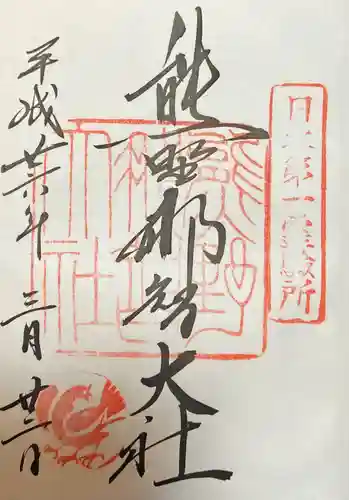 日本第一大霊験所
熊野那智大社
平成廿六年三月廿二日